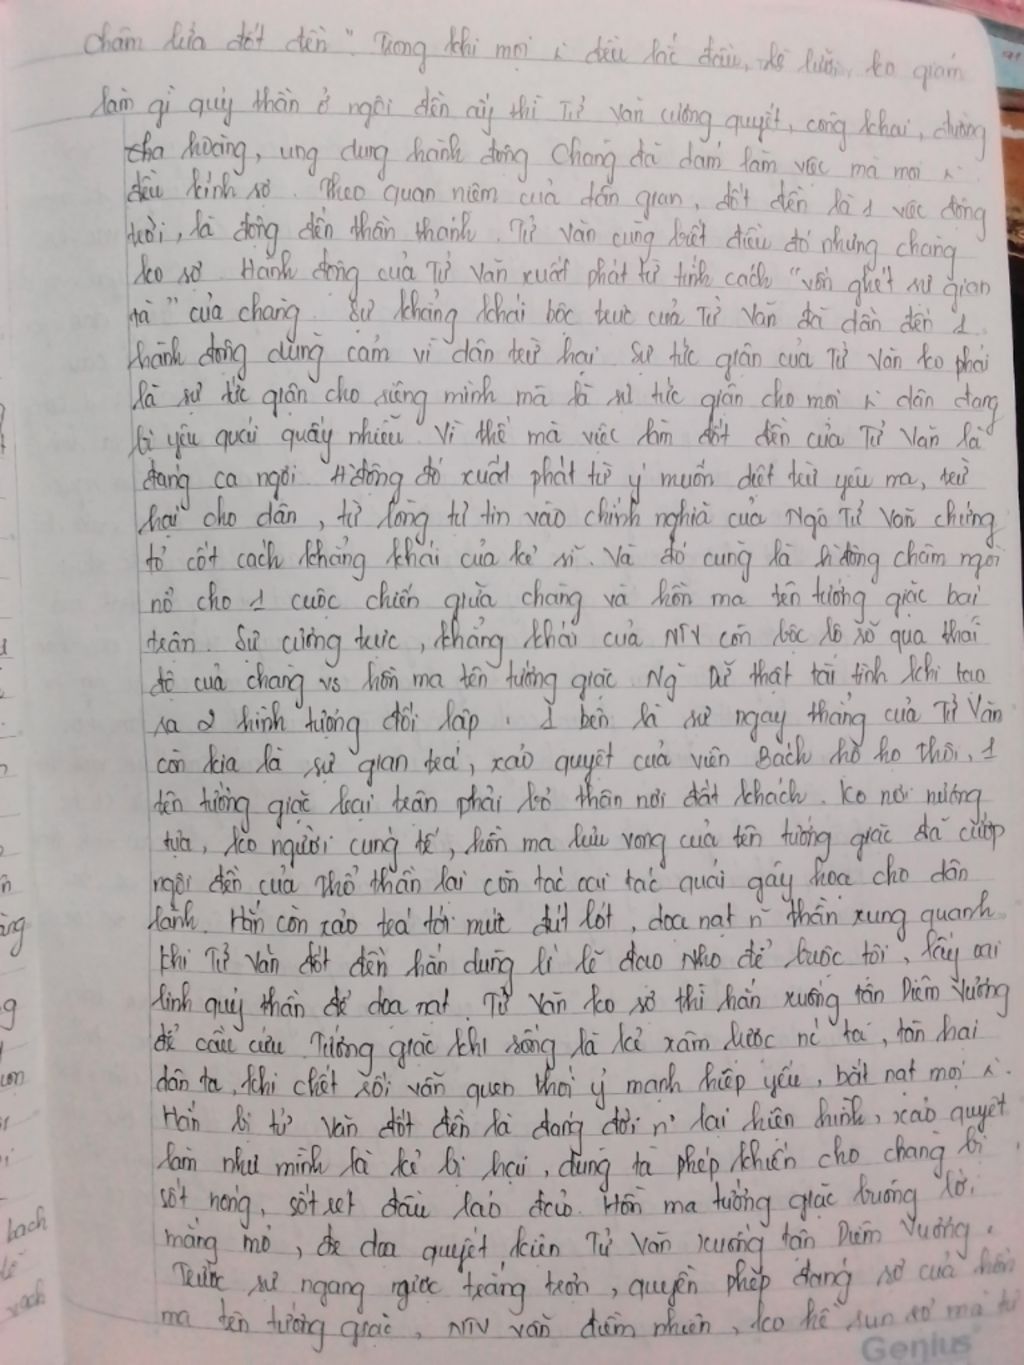 châm lửa đốt đền". Trong khi mọi ² đều lắc đầu, lè lưỡi, ko giám
làm gì quỷ thần ở ngôi đền ấy thì Tử Văn cương quyết, công khai, đường
hoàng, ung dung hành động Chàng đã dám làm việc mà mọi ²
đều kinh sợ. Theo quan niệm của dân gian, đốt đền là 1 việc động
trời, là động đến thần thánh. Tử Văn cũng biết điều đó nhưng chàng
ko sợ. Hành động của Tử Văn xuất phát từ tính cách "vốn ghét sự gian
tà" của chàng. Sự khảng khái bộc trực của Tử Văn đã dẫn đến 1
hành động dũng cảm vì dân trừ hại. Sự tức giận của Tử Văn ko phải
là sự tức giận cho riêng mình mà là sự tức giận cho mọi ² dân đang
bị yêu quái quấy nhiễu. Vì thế mà việc làm đốt đền của Tử Văn là
đáng ca ngợi. Hđộng đó xuất phát từ ý muốn diệt trừ yêu ma, trừ
hại cho dân, từ lòng tự tin vào chính nghĩa của Ngô Tử Văn chứng
tỏ cốt cách khảng khái của kẻ sĩ. Và đó cũng là hđộng châm ngòi
nổ cho 1 cuộc chiến giữa chàng và hồn ma tên tướng giặc bại
trận. Sự cương trực, khảng khái của NTV còn bộc lộ rõ qua thái
độ của chàng vs hồn ma tên tướng giặc. Ng Dữ thật tài tình khi tạo
ra 2 hình tượng đối lập. 1 bên là sự ngay thẳng của Tử Văn
còn kia là sự gian trá, xảo quyệt của viên Bách hộ họ Thôi, 1
tên tướng giặc bại trận phải bỏ thân nơi đất khách. Ko nơi nương
tựa, ko người cúng tế, hồn ma lưu vong của tên tướng giặc đã cướp
ngôi đền của Thổ thần lại còn tác oai tác quái gây họa cho dân
lành. Hắn còn xảo trá tới mức đút lót, dọa nạt thần xung quanh
khi Tử Văn đốt đền hắn dùng lí lẽ đạo Nho để buộc tội, lấy oai
linh quỷ thần để dọa nạt. Tử Văn ko sợ thì hắn xuống tận Diêm Vương
để cầu cứu. Tướng giặc khi sống là kẻ xâm lược nc ta, tàn hại
dân ta, khi chết rồi vẫn quen thói ỷ mạnh hiếp yếu, bắt nạt mọi ².
Hắn bị Tử Văn đốt đền là đáng đời n' lại hiện hình, xảo quyệt
làm như mình là kẻ bị hại, dùng tà phép khiến cho chàng bị
sốt nóng, sốt rét đầu lảo đảo. Hồn ma tướng giặc buông lời
mắng mỏ, đe dọa quyết kiện Tử Văn xuống tận Diêm Vương.
Trước sự ngang ngược trắng trợn, quyền phép đáng sợ của hồn
ma tên tướng giặc, NTV vẫn điềm nhiên, ko hề run sợ mà
Genius